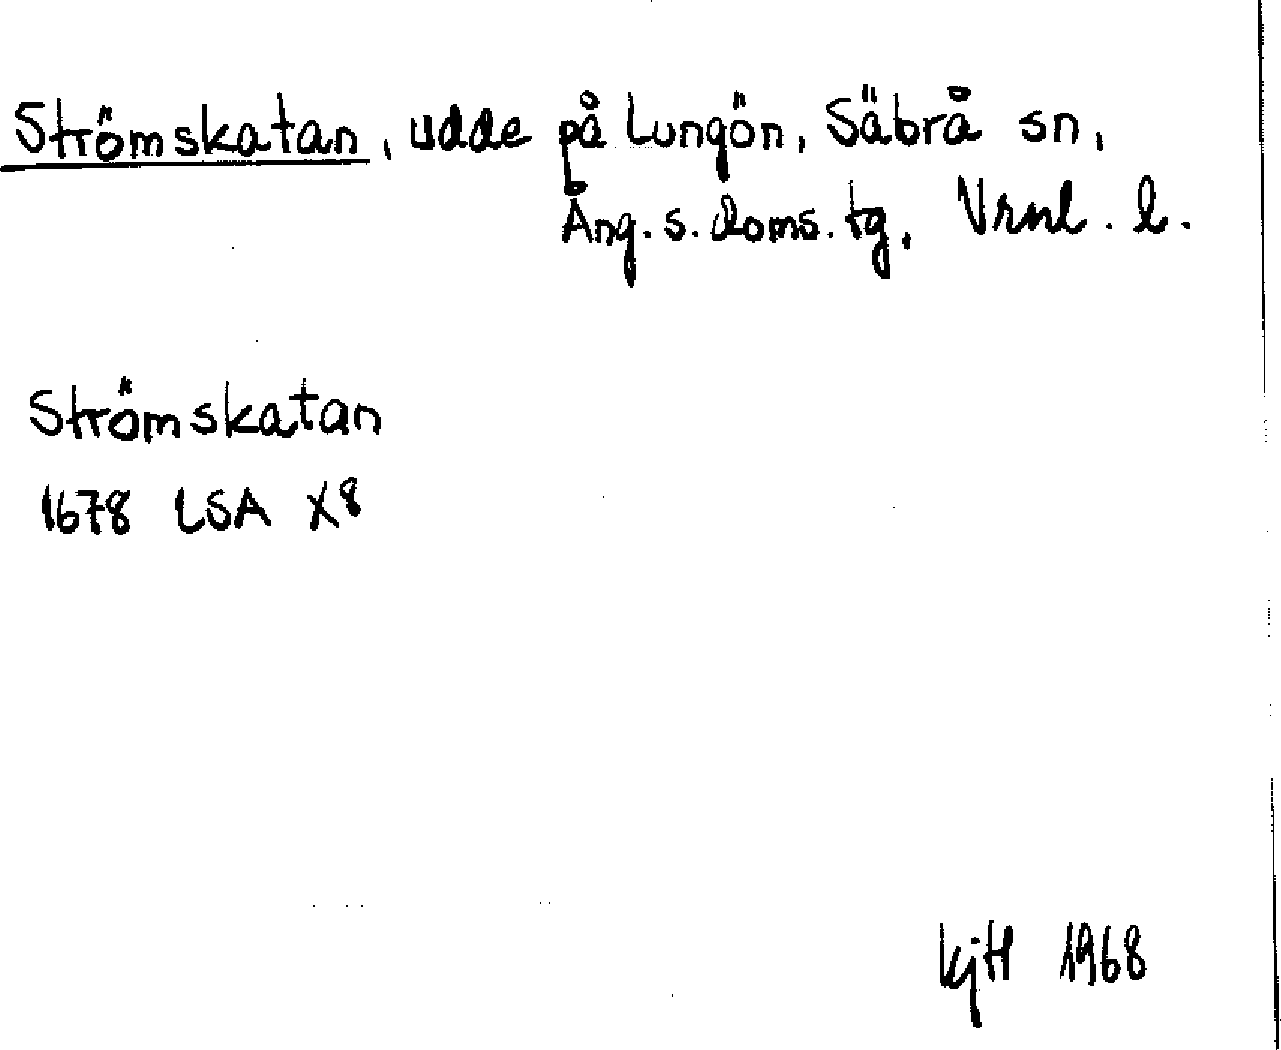 Strömskatan, udde på Lungön, Säbrå sn,
Ång. s. doms. tg, Vrnl. l.
Strömskatan
1678 LSA X8
kjH 1968